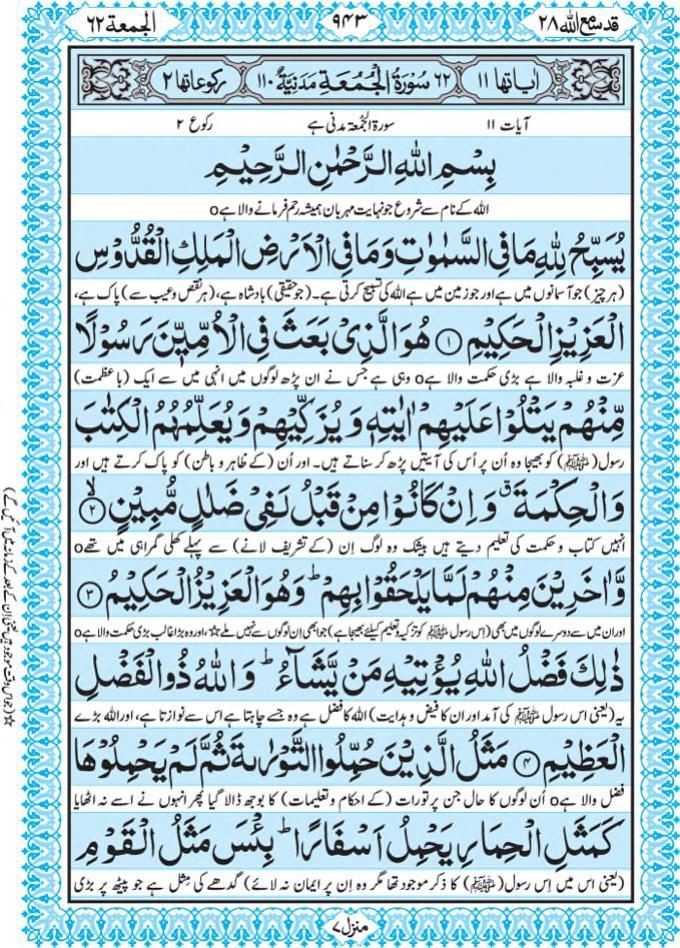 قد سمع الله ٢٨
٩٤٣
الجمعة ٦٢
اٰیاتها ١١
٦٢ سُوْرَةُ الْجُمُعَةِ مَدَنِيَّةٌ ١١٠
رکوعاتها ٢
آیات ١١
سورۃ الجُمعۃ مدنی ہے
رکوع ٢
بِسْمِ اللهِ الرَّحْمٰنِ الرَّحِيْمِ
اللہ کے نام سے شروع جو نہایت مہربان ہمیشہ رحم فرمانے والا ہے o
يُسَبِّحُ لِلّٰهِ مَا فِي السَّمٰوٰتِ وَمَا فِي الْاَرْضِ الْمَلِكِ الْقُدُّوْسِ
(ہر چیز) جو آسمانوں میں ہے اور جو زمین میں ہے اللہ کی تسبیح کرتی ہے۔ (جو حقیقی) بادشاہ ہے، (ہر نقص و عیب سے) پاک ہے،
الْعَزِيْزِ الْحَكِيْمِ ١ هُوَ الَّذِيْ بَعَثَ فِي الْاُمِّيّٖنَ رَسُوْلًا
عزت و غلبہ والا ہے بڑی حکمت والا ہے o وہی ہے جس نے ان پڑھ لوگوں میں انہی میں سے ایک (با عظمت)
مِّنْهُمْ يَتْلُوْا عَلَيْهِمْ اٰيٰتِهٖ وَيُزَكِّيْهِمْ وَيُعَلِّمُهُمُ الْكِتٰبَ
رسول (ﷺ) کو بھیجا وہ اُن پر اُس کی آیتیں پڑھ کر سناتے ہیں۔ اور اُن (کے ظاہر و باطن) کو پاک کرتے ہیں اور
وَالْحِكْمَةَ ۗ وَاِنْ كَانُوْا مِنْ قَبْلُ لَفِيْ ضَلٰلٍ مُّبِيْنٍ ۙ ٢
انہیں کتاب و حکمت کی تعلیم دیتے ہیں بیشک وہ لوگ اِن (کے تشریف لانے) سے پہلے کھلی گمراہی میں تھے o
وَّاٰخَرِيْنَ مِنْهُمْ لَمَّا يَلْحَقُوْا بِهِمْ ۭ وَهُوَ الْعَزِيْزُ الْحَكِيْمُ ٣
اور ان میں سے دوسرے لوگوں میں بھی (اِس رسول ﷺ کو تزکیہ و تعلیم کیلئے بھیجا ہے) جو ابھی اِن لوگوں سے نہیں ملے☆، اور وہ بڑا غالب بڑی حکمت والا ہے o
ذٰلِكَ فَضْلُ اللهِ يُؤْتِيْهِ مَنْ يَّشَآءُ ۭ وَاللهُ ذُو الْفَضْلِ
یہ (یعنی اس رسول ﷺ کی آمد اور ان کا فیض و ہدایت) اللہ کا فضل ہے وہ جسے چاہتا ہے اس سے نوازتا ہے، اور اللہ بڑے
الْعَظِيْمِ ٤ مَثَلُ الَّذِيْنَ حُمِّلُوا التَّوْرٰىةَ ثُمَّ لَمْ يَحْمِلُوْهَا
فضل والا ہے o اُن لوگوں کا حال جن پر تورات (کے احکام و تعلیمات) کا بوجھ ڈالا گیا پھر انہوں نے اسے نہ اٹھایا
كَمَثَلِ الْحِمَارِ يَحْمِلُ اَسْفَارًا ۭ بِئْسَ مَثَلُ الْقَوْمِ
(یعنی اس میں اِس رسول (ﷺ) کا ذکر موجود تھا مگر وہ اِن پر ایمان نہ لائے) گدھے کی مِثل ہے جو پیٹھ پر بڑی
منزل ٧
☆ (جو اس وقت موجود ہیں یعنی اِن کے بعد کے زمانہ میں آئیں گے)